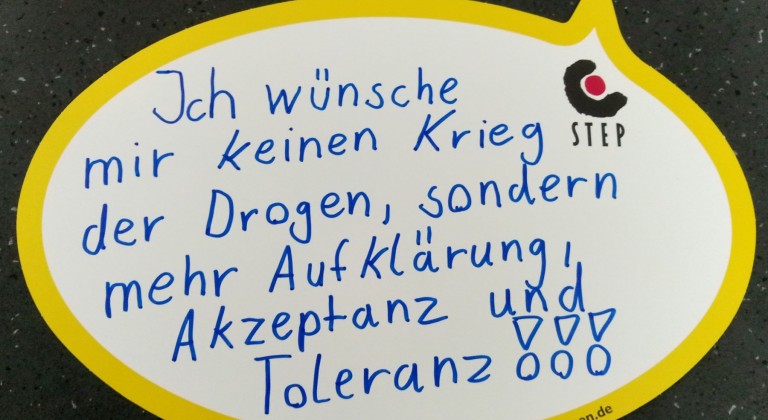 Ich wünsche
mir keinen Krieg
STEP
der Drogen, sondern
mehr Aufklärung,
Akzeptanz und
Toleranz !!!